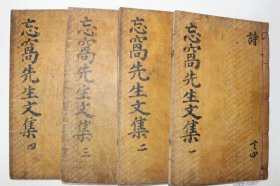 詩
忘窩先生文集 一
共四
忘窩先生文集 二
忘窩先生文集 三
忘窩先生文集 四